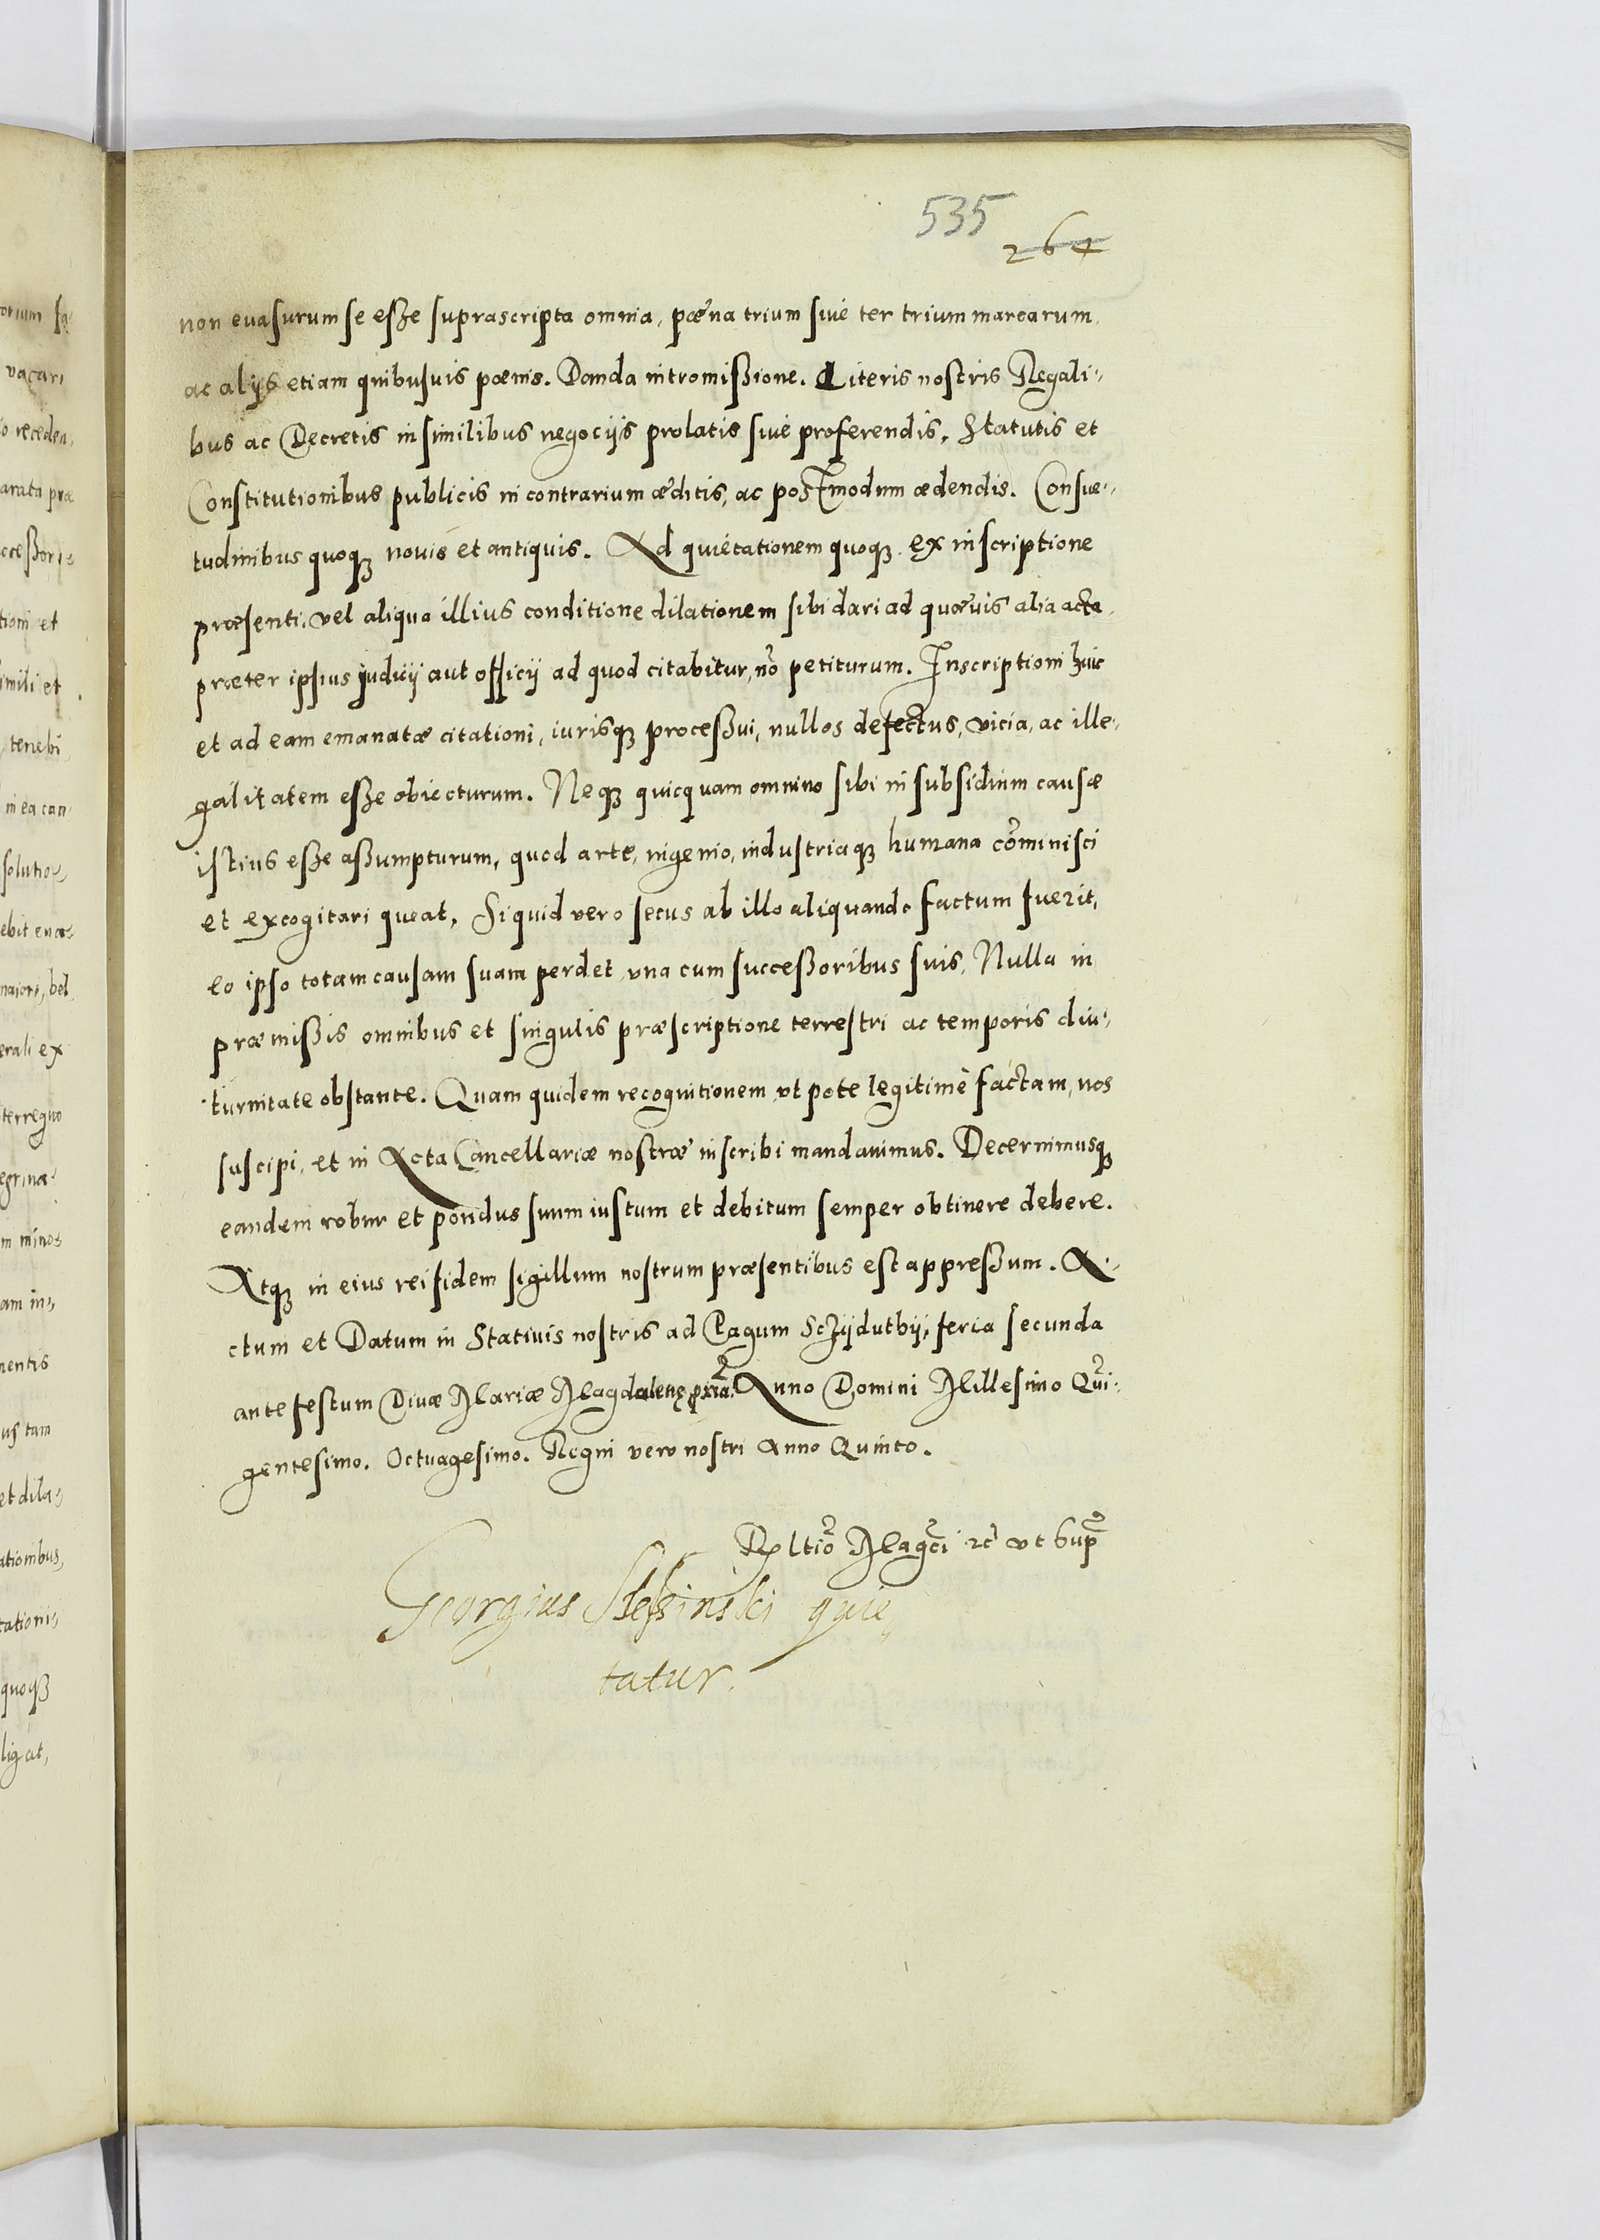 535
264
non euasurum se esse suprascripta omnia, pœna trium siue ter trium marcarum,
ac alijs etiam quibusuis pœnis. Danda intromissione. Literis nostris Regali-
bus ac Decretis in similibus negocijs prolatis siue proferendis, Statutis et
Constitutionibus publicis in contrarium æditis, ac postmodum ædendis. Consue-
tudinibus quoq₃ nouis et antiquis. Ad quietationem quoq₃ ex inscriptione
præsenti, vel aliqua illius conditione dilationem sibi dari ad quæuis alia acta
præter ipsius judicij aut officij ad quod citabitur, nõ petiturum. Inscriptioni huic
et ad eam emanatæ citationi, iurisq₃ processui, nullos defectus, vicia, ac ille-
galitatem esse obiecturum. Neq₃ quicquam omnino sibi in subsidium causæ
istius esse assumpturum, quod arte, ingenio, industriaq₃ humana cõminisci
et excogitari queat. Siquid vero secus ab illo aliquando factum fuerit,
eo ipso totam causam suam perdet vna cum successoribus suis, Nulla in
præmissis omnibus et singulis præscriptione terrestri ac temporis diu-
turnitate obstante. Quam quidem recognitionem vt pote legitimè factam, nos
suscipi, et in Acta Cancellariæ nostræ inscribi mandauimus. Decernimusq₃
eandem robur et pondus suum iustum et debitum semper obtinere debere.
Atq₃ in eius rei fidem sigillum nostrum præsentibus est appressum. A-
ctum et Datum in Statiuis nostris ad Pagum Sczijduthij, feria secunda
ante festum Diuæ Mariæ Magdalenę pxiã. Anno Domini Millesimo Qũi-
gentesimo. Octuagesimo. Regni vero nostri Anno Quinto.
Rltiõ Mag̃ci rc̃ vt sup̃
Georgius Slesinski quie-
tatur.